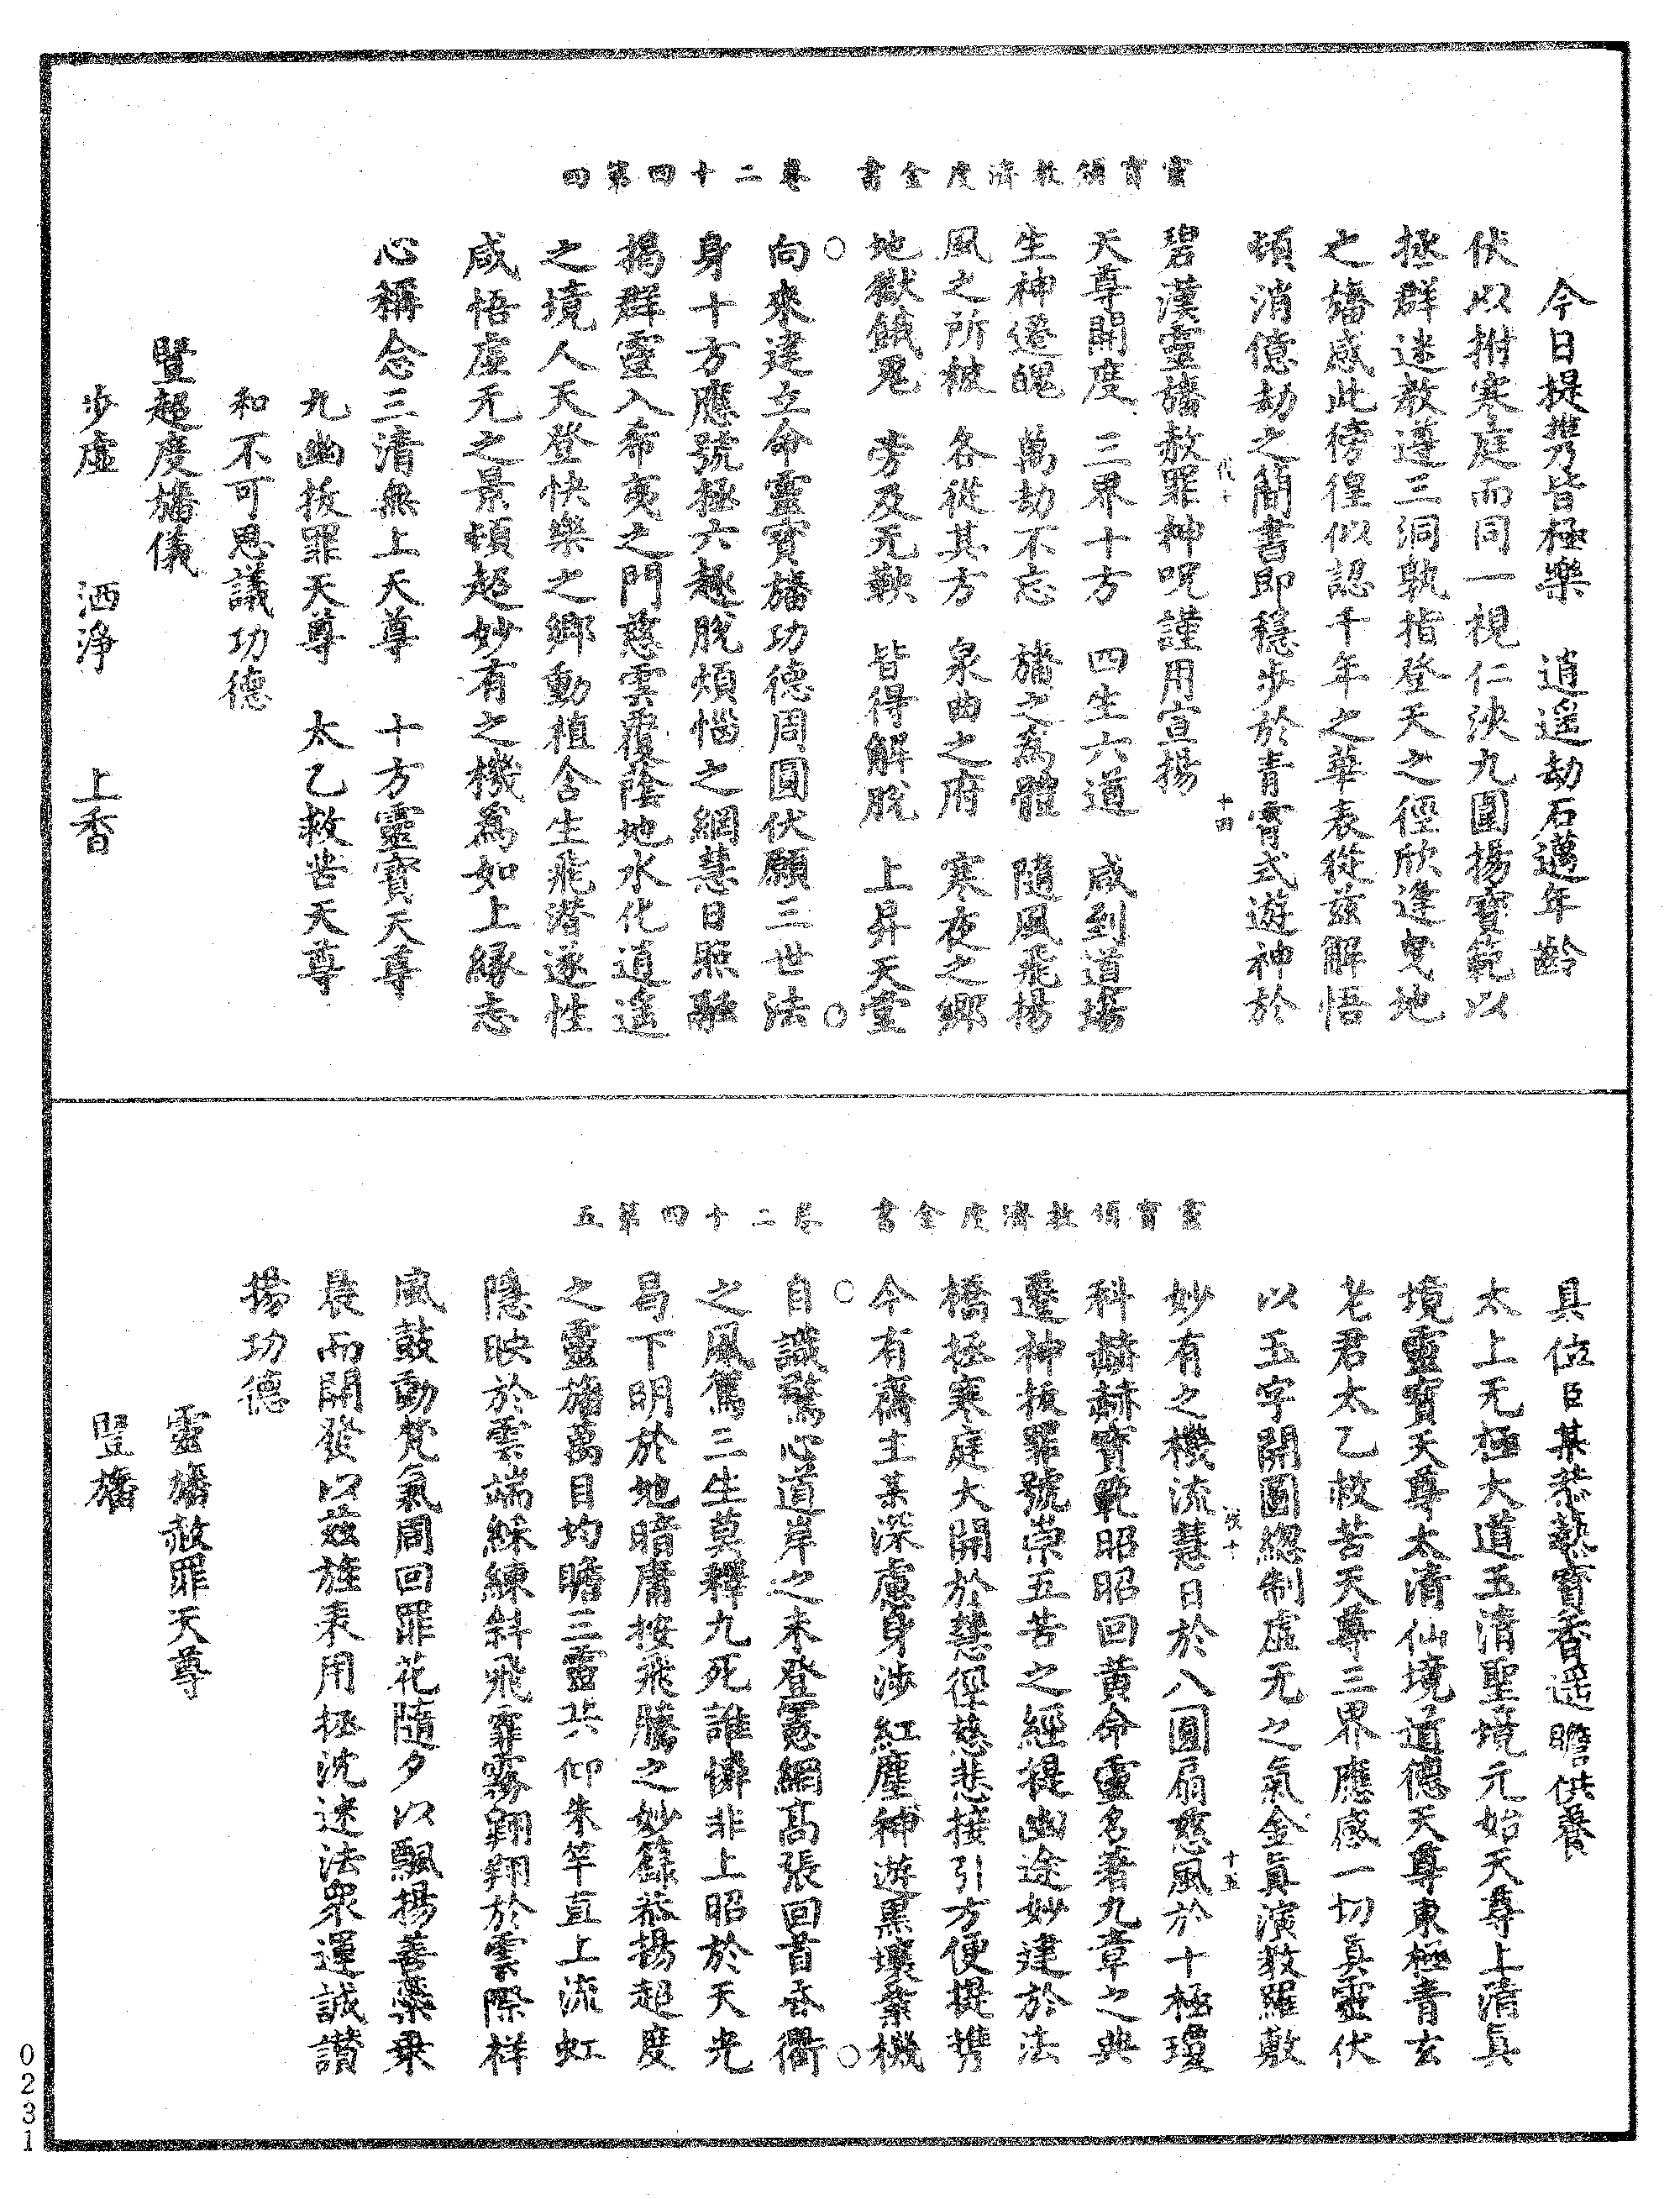 靈寶領教濟度金書　卷二十四第四
今日提攜皆極樂　逍遥劫石邁年齡
伏以拊寒庭而同一視仁決九圓揚寶範以
拯群迷教遵三洞孰指登天之徑欣逢曳地
之旛感此徬徨似認千年之華表從兹解悟
頓消億劫之簡書即穩步於青霄式遊神於
碧漢靈旛赦罪神呪謹用宣揚
天尊開度　三界十方　四生六道　咸到道場
生神遷魄　萬劫不忘　旛之爲體　隨風飛揚
風之所被　各從其方　泉曲之府　寒夜之鄉
地獄餓鬼　旁及无鞅　皆得解脫　上昇天堂
向來建立命靈寶旛功德周圓伏願三世法
身十方應號拯六趣脫煩惱之網慧日照融
揭群靈入希夷之門慈雲覆蔭地水化逍遥
之境人天登快樂之鄉動植含生飛潛遂性
咸悟虛无之景頓超妙有之機爲如上緣志
心稱念三清無上天尊　十方靈寶天尊
九幽拔罪天尊　太乙救苦天尊
和不可思議功德
豎超度旛儀
步虛　洒淨　上香
十四
靈寶領教濟度金書　卷二十四第五
具位臣某恭爇寶香遥瞻供養
太上无極大道玉清聖境元始天尊上清真
境靈寶天尊太清仙境道德天尊東極青玄
老君太乙救苦天尊三界應感一切真靈伏
以玉字開圖緫制虛无之氣金真演教羅敷
妙有之機流慧日於八圓扇慈風於十極瓊
科赫赫寶範昭昭回黄命靈名著九章之典
遷神拔罪號崇五苦之經提幽途妙建於法
橋拯寒庭大開於慧徑慈悲接引方便提攜
今有齋主某深慮身涉紅塵神遊黑壤業機
自識驚心道岸之未登憲網高張回首吞衢
之風篤三生莫釋九死誰憐非上昭於天光
曷下明於地暗庸按飛騰之妙籙恭揚超度
之靈旛萬目均瞻三靈共仰朱竿直上流虹
隱映於雲端綵練斜飛霏霧翱翔於雲際祥
風鼓動梵氣周回罪花隨夕以飄揚善蘂乗
晨而開發以兹旌表用拯沈迷法衆運誠讃
揚功德
靈旛赦罪天尊
豎旛
十五
0231